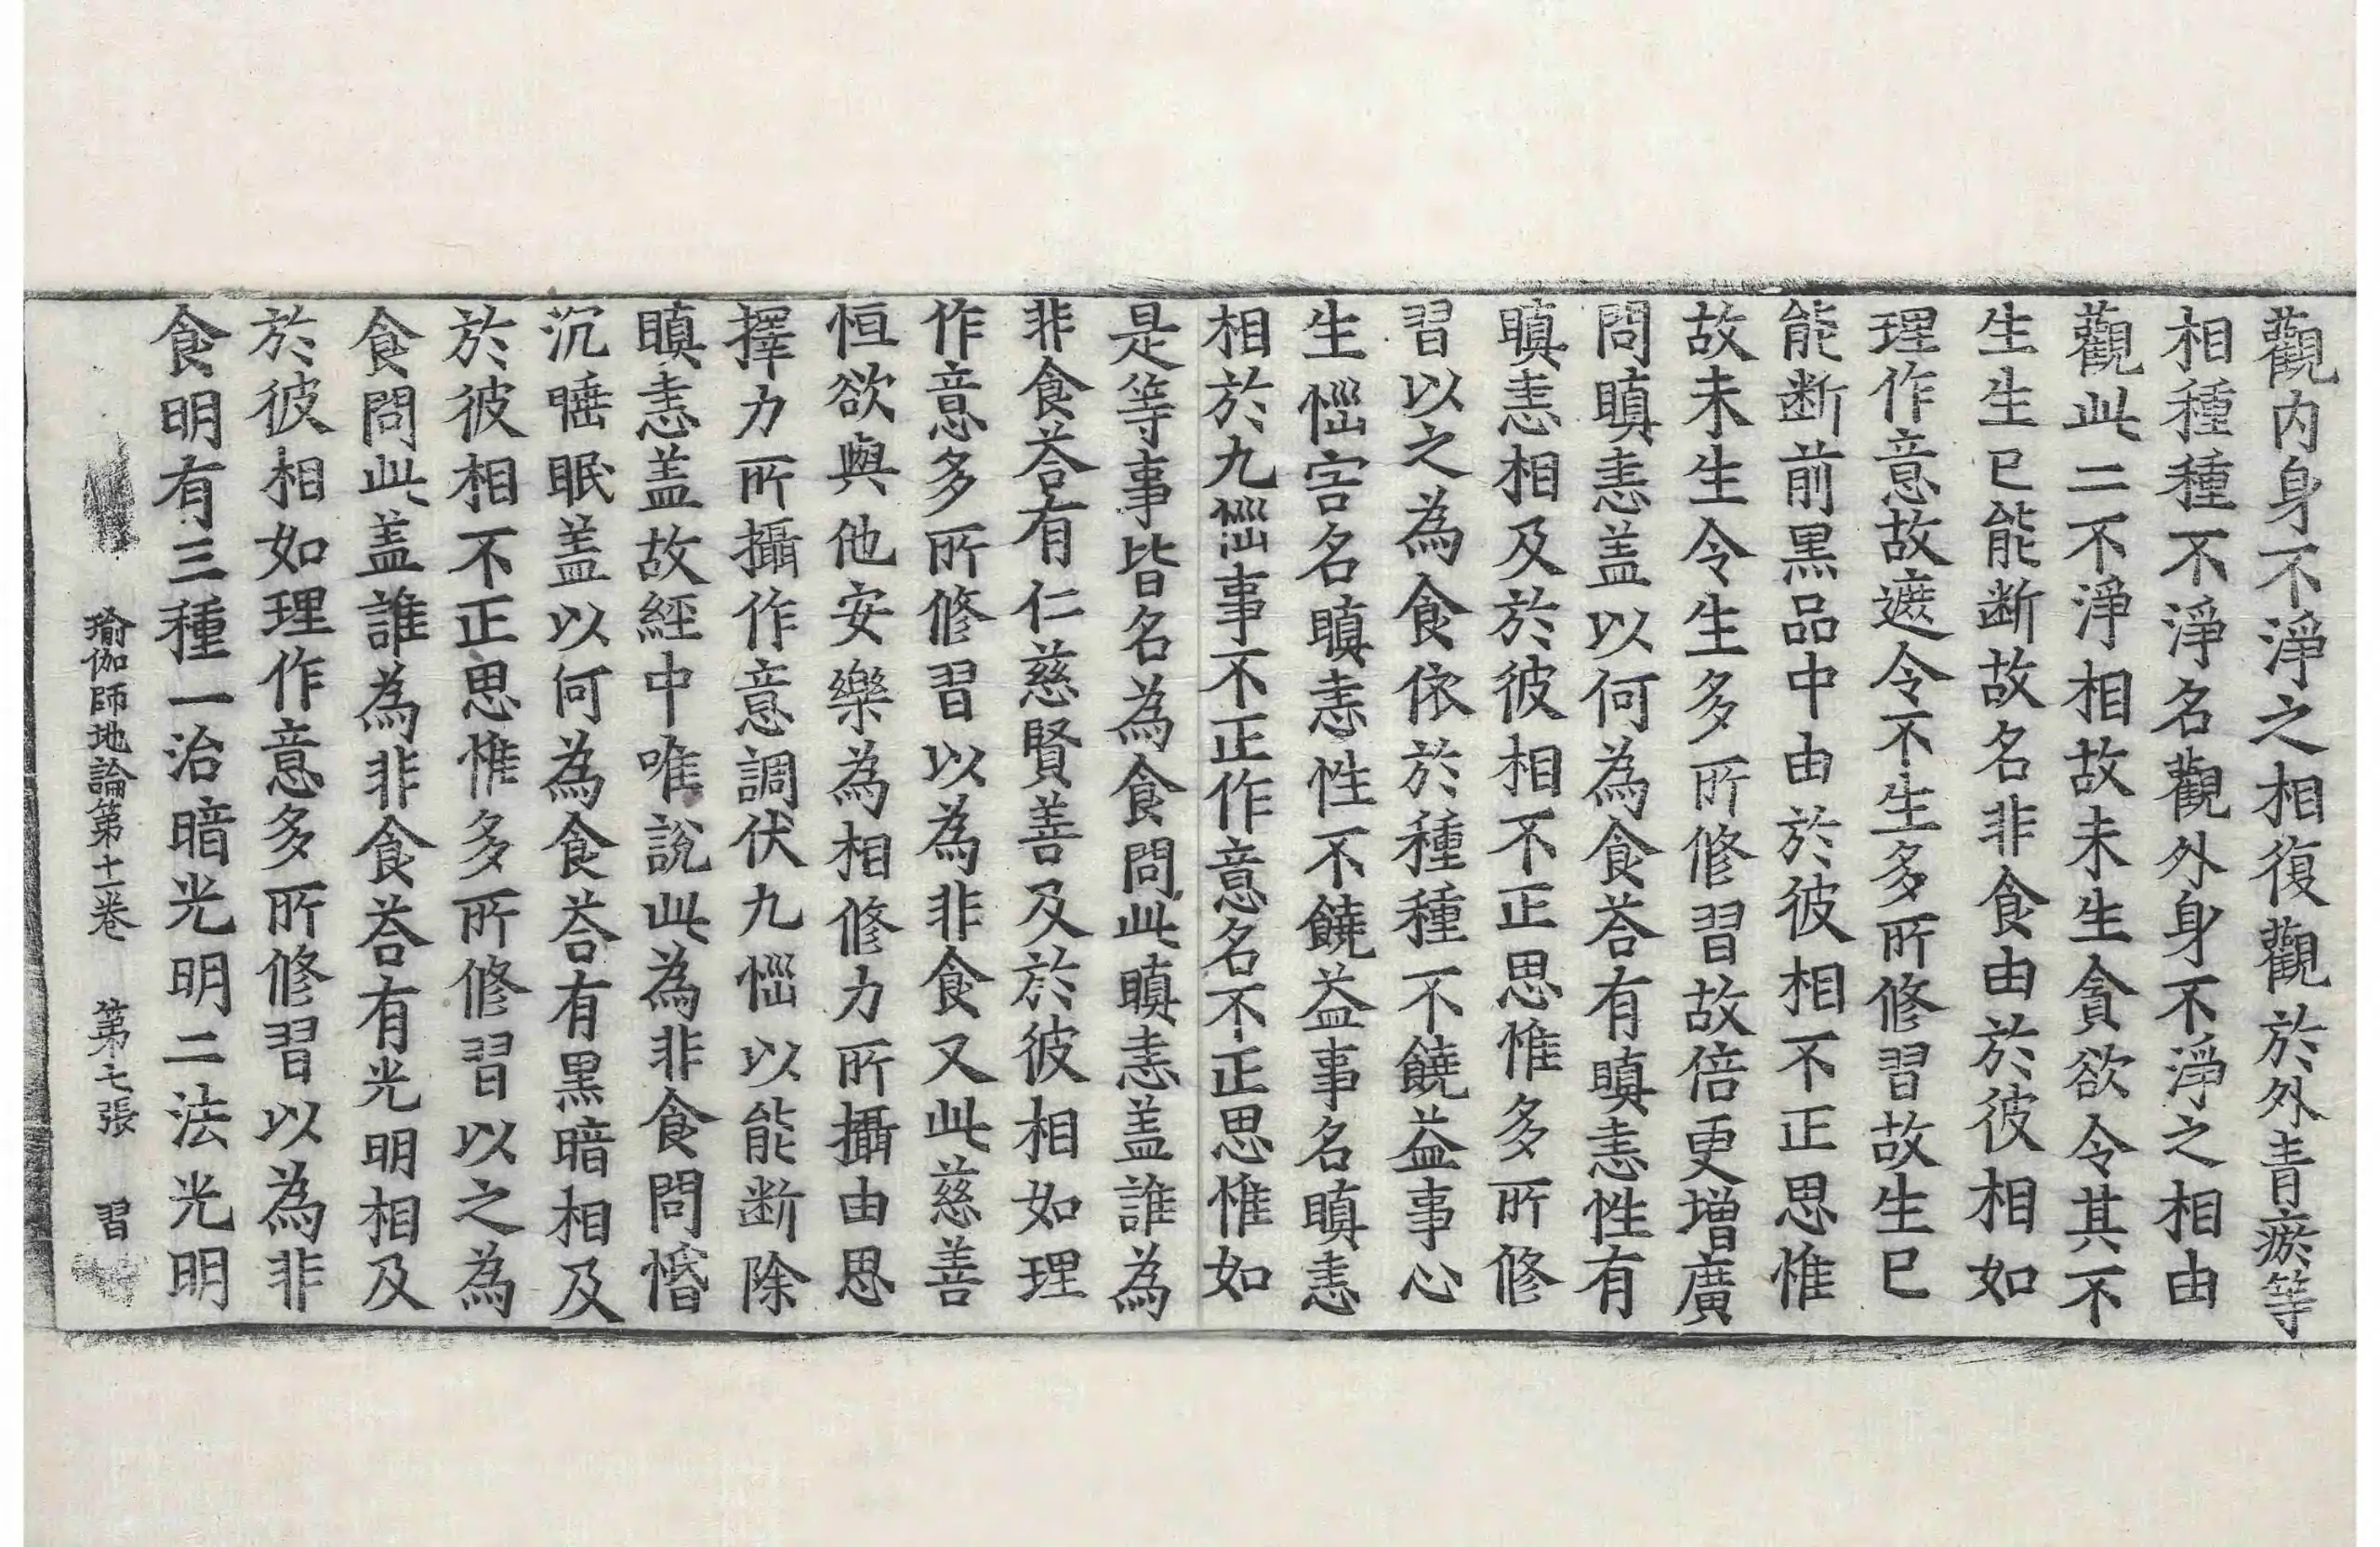 觀内身不淨之相復觀於外青瘀等
相種種不淨名觀外身不淨之相由
觀此二不淨相故未生貪欲令其不
生生已能断故名非食由於彼相如
理作意故遮令不生多所修習故生已
能断前黒品中由於彼相不正思惟
故未生令生多所修習故倍更增廣
問瞋恚盖以何為食荅有瞋恚性有
瞋恚相及於彼相不正思惟多所修
習以之為食依於種種不饒益事心
生惱害名瞋恚性不饒益事名瞋恚
相於九惱事不正作意名不正思惟如
是等事皆名為食問此瞋恚盖誰為
非食荅有仁慈賢善及於彼相如理
作意多所修習以為非食又此慈善
恒欲與他安樂為相修力所攝由思
擇力所攝作意調伏九惱以能断除
瞋恚盖故經中唯說此為非食問惛
沉睡眠盖以何為食荅有黒暗相及
於彼相不正思惟多所修習以之為
食問此盖誰為非食荅有光明相及
於彼相如理作意多所修習以為非
食明有三種一治暗光明二法光明
瑜伽師地論第十一卷 第七張 習